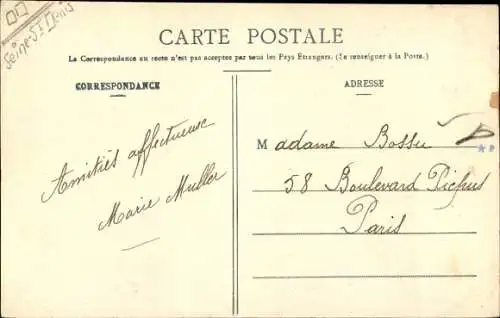 Seine St Denis
CARTE POSTALE
La Correspondance au recto n'est pas acceptée par tous les Pays Étrangers. (Se renseigner à la Poste.)
CORRESPONDANCE
ADRESSE
Amitiés affectueuse
Marie Muller
Madame Bossu
58 Boulevard Picpus
Paris